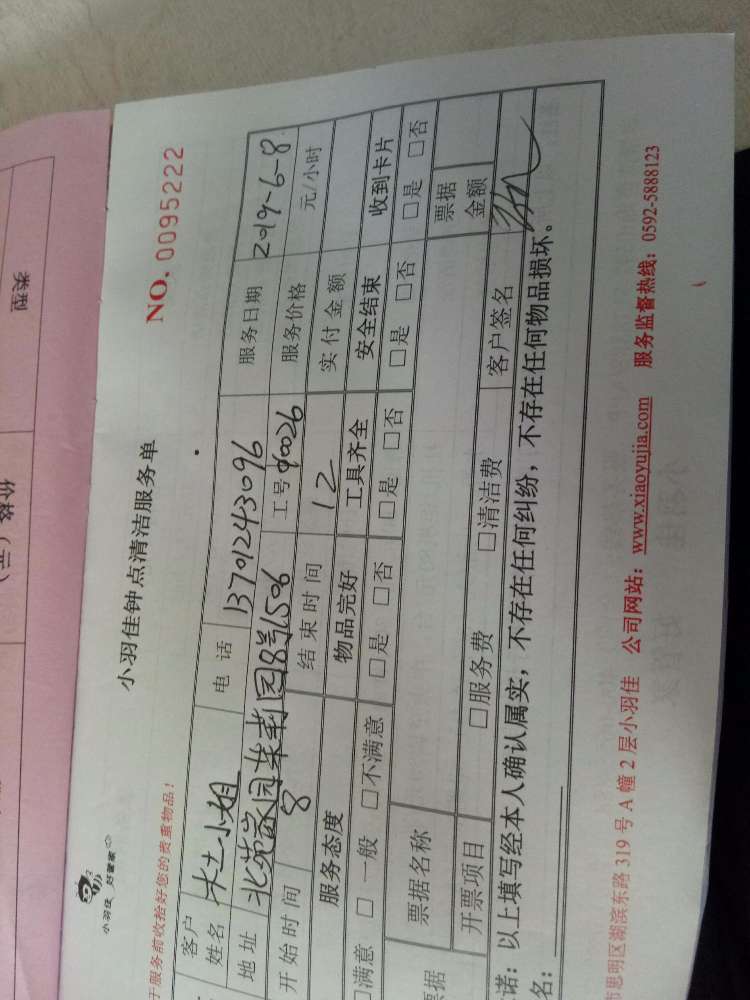 类型
价格（元）
小羽佳 好管家
小羽佳钟点清洁服务单
NO. 0095222
于服务前收拾好您的贵重物品！
客户姓名 小姐 电话 13701243096 服务日期 2019-6-8
地址 北苑家园茉莉园8号1506 工号 90026 服务价格 元/小时
开始时间 8 结束时间 12 实付金额
服务态度 物品完好 工具齐全 安全结束 收到卡片
□满意 □一般 □不满意 □是 □否 □是 □否 □是 □否 □是 □否
票据 票据名称 票据金额
开票项目 □服务费 □清洁费 客户签名
诺：以上填写经本人确认属实，不存在任何纠纷，不存在任何物品损坏。
名：
市思明区湖滨东路319号A幢2层小羽佳 公司网站：www.xiaoyujia.com 服务监督热线：0592-5888123